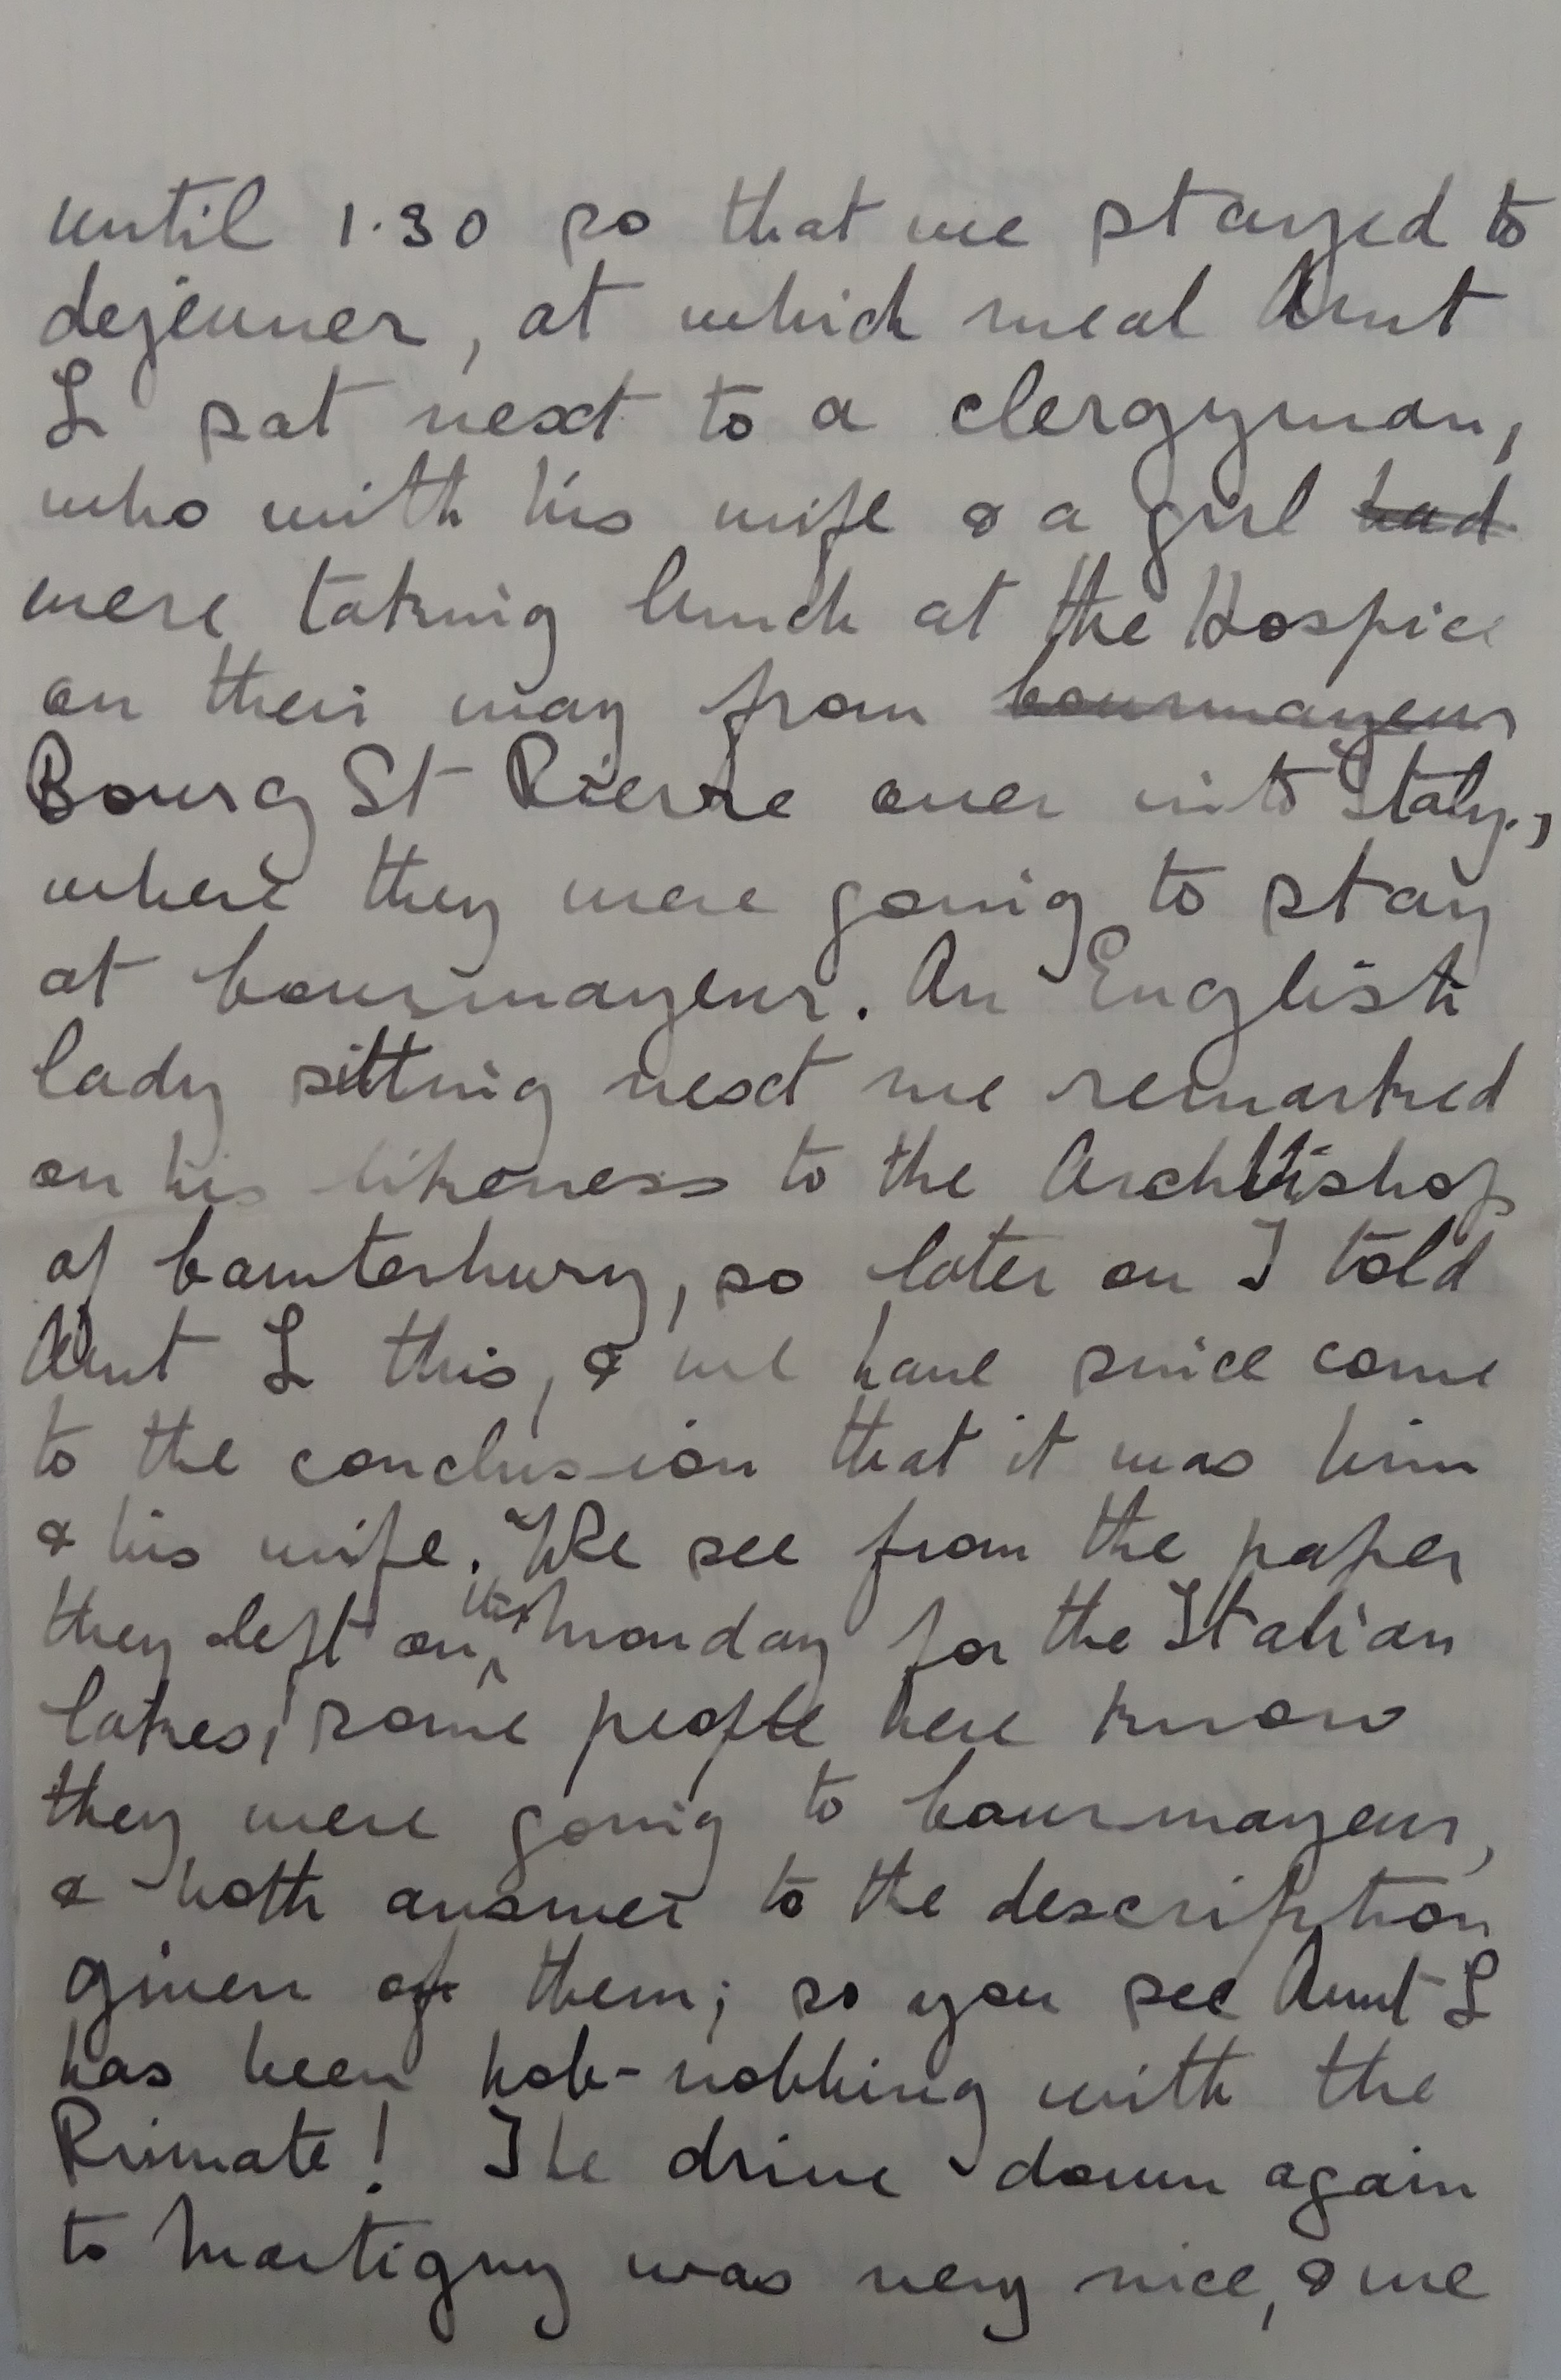 until 1.30 so that we stayed to
dejeuner, at which meal Aunt
L sat next to a clergyman,
who with his wife & a girl had
were taking lunch at the Hospice
on their way from Courmayeur
Bourg St Pierre over into Italy.,
where they were going to stay
at Courmayeur. An English
lady sitting next me remarked
on his likeness to the Archbishop
of Canterbury, so later on I told
Aunt L this, & we have since come
to the conclusion that it was him
& his wife. We see from the paper
they left on the Monday for the Italian
lakes, some people here know
they were going to Courmayeur,
& both answer to the description
given of them; so you see Aunt L
has been hob-nobbing with the
Primate! The drive down again
to Martigny was very nice, & we